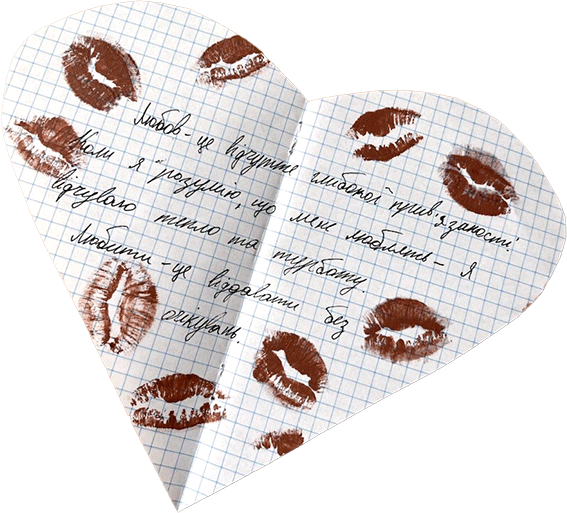 Любов - це відчуття глибокої прив'язаності!
Коли я розумію, що мене люблять - я
відчуваю тепло та турботу.
Любити - це віддавати без
очікувань.